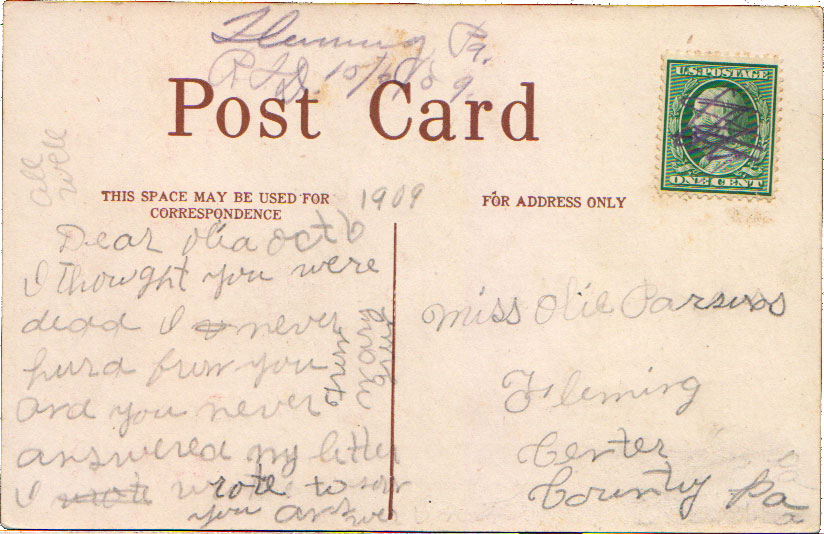 Fleming Pa.
R.F.D. 10/6/09.
Post Card
U.S. POSTAGE
ONE CENT
all
well
THIS SPACE MAY BE USED FOR
CORRESPONDENCE
1909
FOR ADDRESS ONLY
Dear Olia Oct 6
I thought you were
dead I never
hurd from you
and you never
answered my letter
I wrote to
you answer
Miss Olie Parsons
Fleming
Center
County Pa